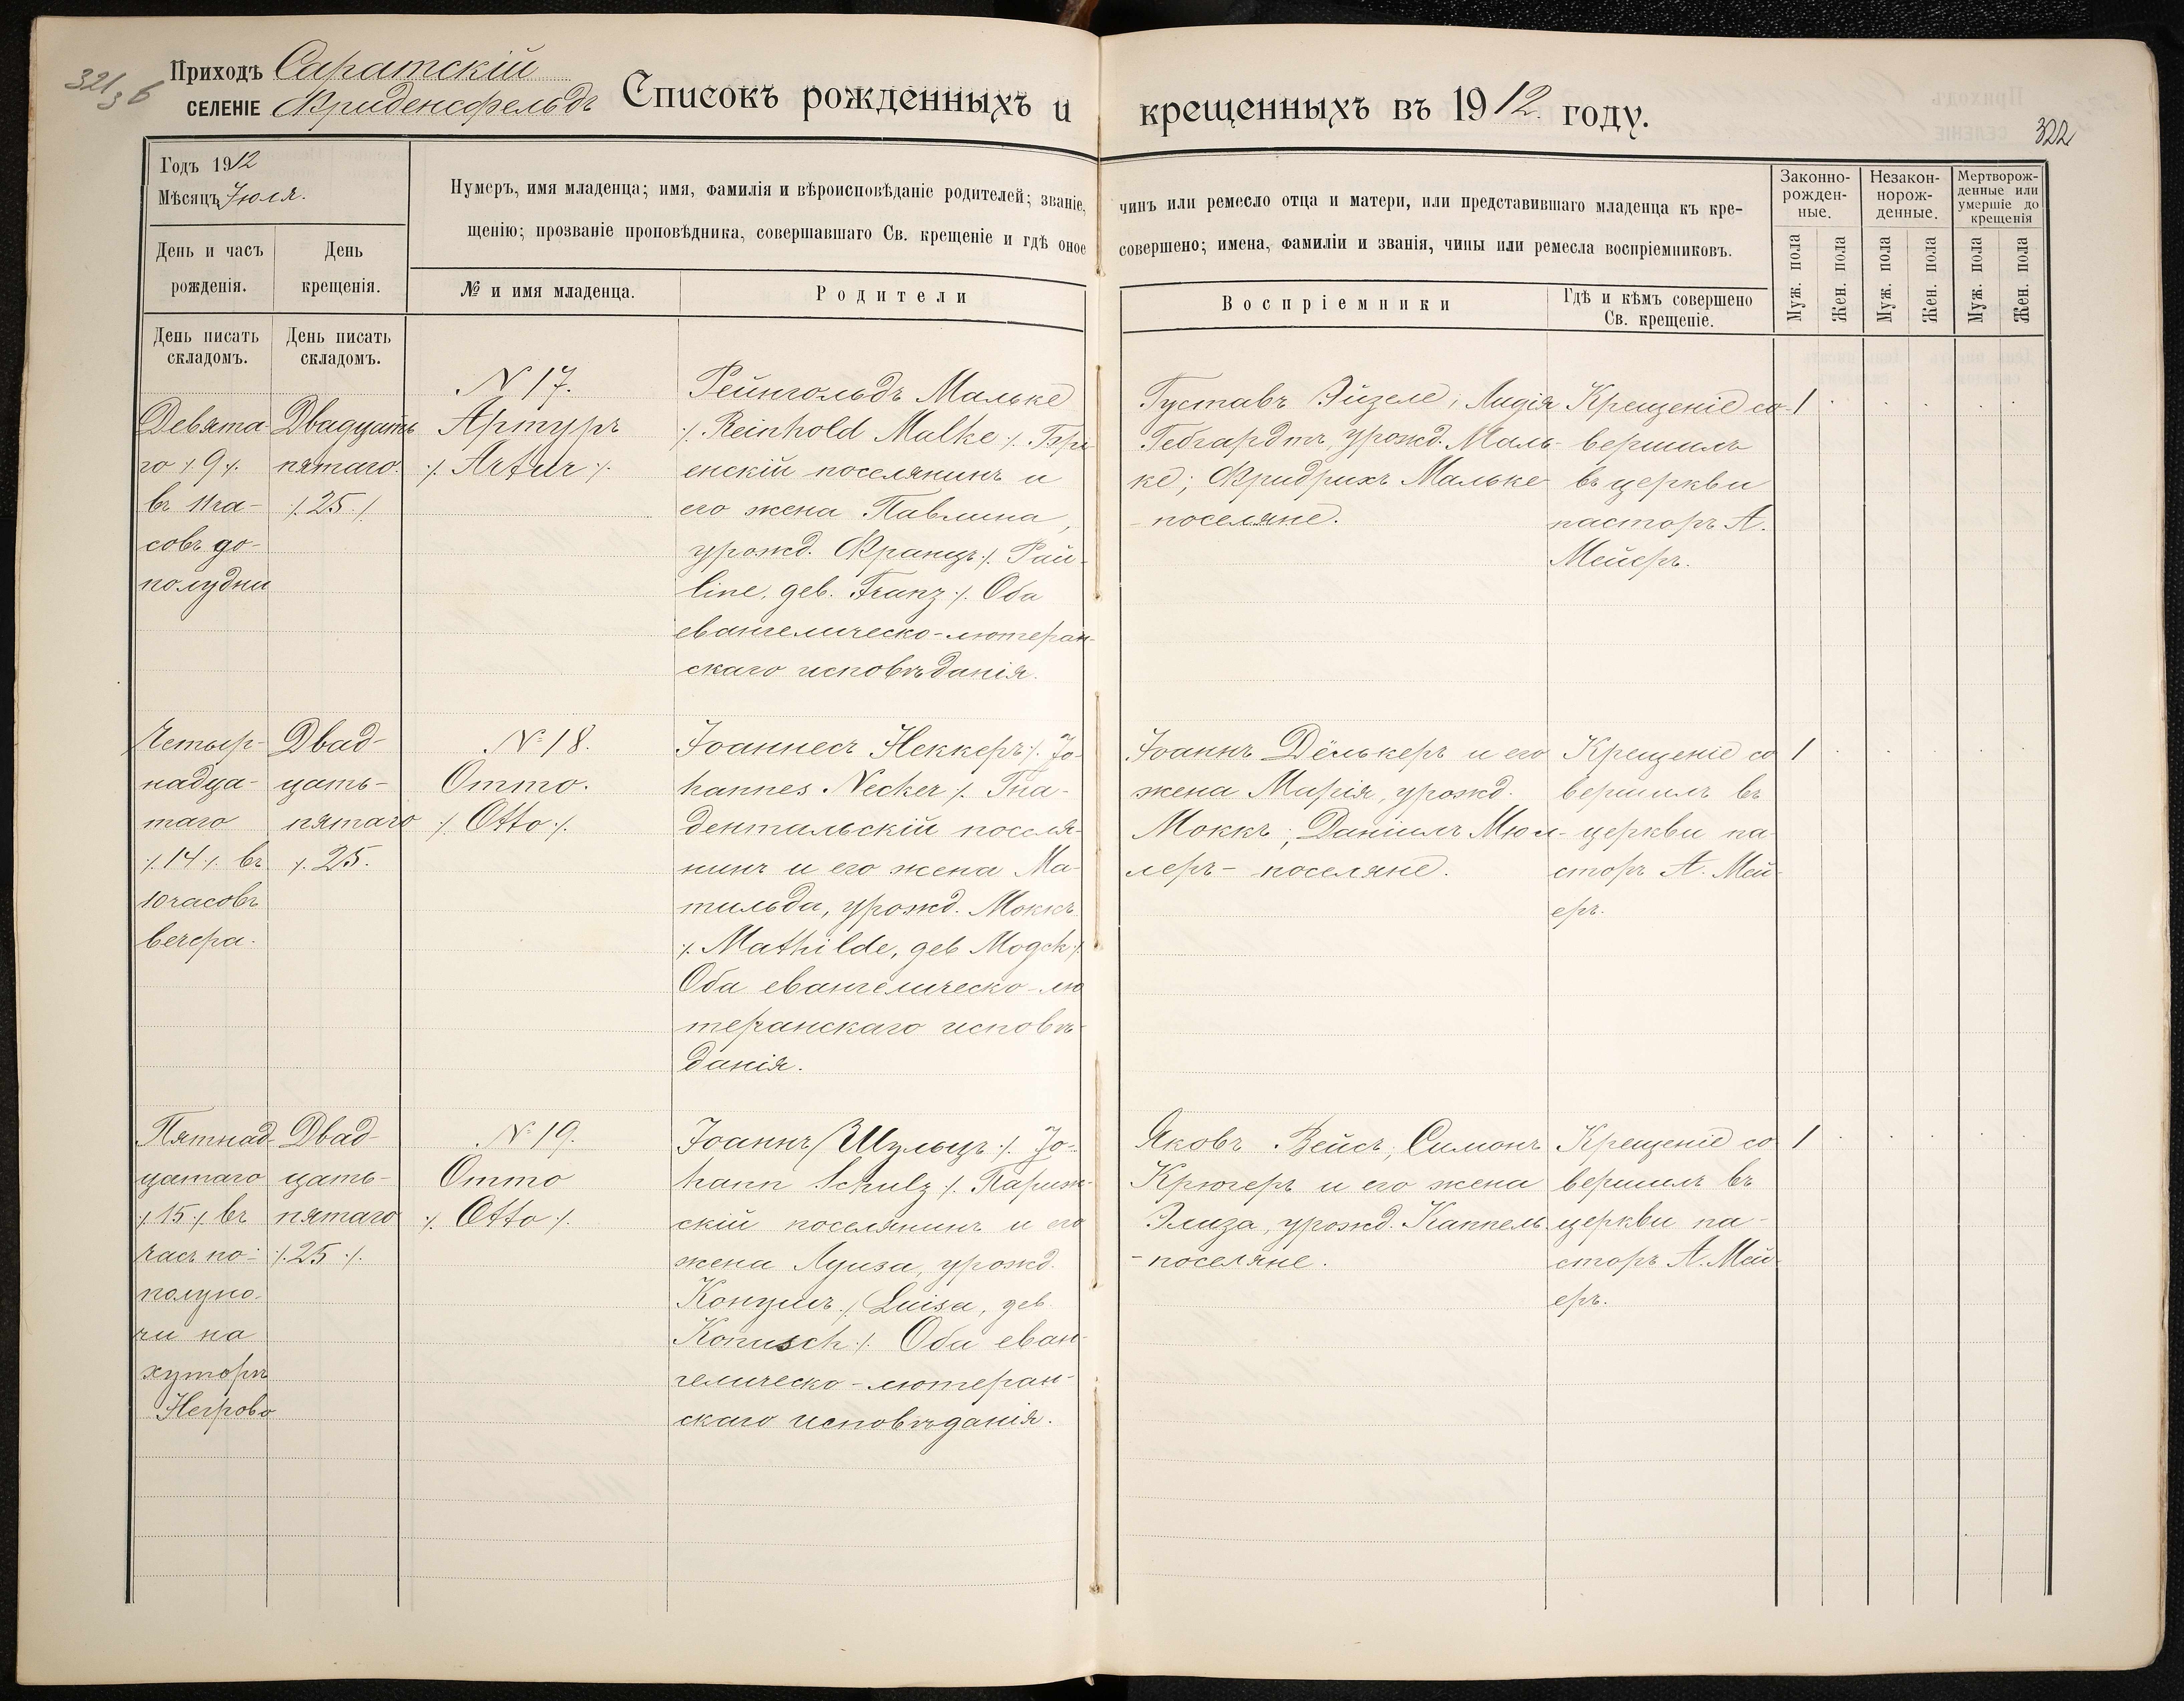 321
Приходъ Саратскій
СЕЛЕНІЕ Фриденсфельдъ
Списокъ рожденныхъ и крещенныхъ въ 1912 году.
322
Годъ 1912
Мѣсяцъ Июля.
День и часъ рожденія.
День крещенія.
Нумеръ, имя младенца; имя, фамилія и вѣроисповѣданіе родителей; званіе, чинъ или ремесло отца и матери, или представившаго младенца къ кре-
щенію; прозваніе проповѣдника, совершавшаго Св. крещеніе и гдѣ оное совершено; имена, фамиліи и званія, чины или ремесла воспріемниковъ.
№ и имя младенца.
Родители
Воспріемники
Гдѣ и кѣмъ совершено
Св. крещеніе.
Законно-
рожден-
ные.
Незакон-
норож-
денные.
Мертворож-
денные или
умершіе до
крещенія
Муж. пола
Жен. пола
Муж. пола
Жен. пола
Муж. пола
Жен. пола
День писать
складомъ.
День писать
складомъ.
Девята-
го ⁒ 9 ⁒
въ 11 ча-
совъ до-
полудни
Двадцать
пятаго.
⁒ 25 ⁒
N 17.
Артуръ
⁒ Artur ⁒
Рейнгольдъ Мальке
⁒ Reinhold Malke ⁒
енскій поселянинъ и
его жена Павлина,
урожд. Францъ ⁒ Pau-
line, geb. Franz ⁒ Оба
евангелическо-лютеран-
скаго исповѣданія.
Густавъ Эйзеле; Лидія
Гебгардтъ, урожд. Маль-
ке; Фридрихъ Мальке
- поселяне.
Крещеніе со-
вершилъ
въ церкви
пасторъ А.
Мейеръ.
1
Четыр-
надца-
таго
⁒ 14 ⁒ въ
10 часовъ
вечера.
Двад-
цать-
пятаго
⁒ 25.
N 18.
Отто.
⁒ Otto ⁒
Іоаннесъ Неккеръ ⁒ Jo-
hannes Necker ⁒ Гна-
дентальскій поселя-
нинъ и его жена Ма-
тильда, урожд. Моккъ
⁒ Mathilde, geb Mogck ⁒
Оба евангелическо-лю
теранскаго исповѣ-
данія.
Іоаннъ Дёлькеръ и его
жена Марія, урожд.
Моккъ; Даніилъ Мюл-
леръ - поселяне.
Крещеніе со
вершилъ въ
церкви па-
сторъ А. Мей-
еръ.
1
Пятнад-
цатаго
⁒ 15 ⁒ въ
часъ по-
полуно-
чи на
хуторѣ
Негрово
Двад-
цать-
пятаго
⁒ 25 ⁒
N 19.
Отто
⁒ Otto ⁒
Іоаннъ Шульцъ ⁒ Jo-
hann Schulz ⁒ Париж-
скій поселянинъ и его
жена Луиза, урожд.
Конушъ ⁒ Luisa, geb.
Konusch ⁒ Оба еван-
гелическо-лютеран-
скаго исповѣданія.
Яковъ Вейсъ; Симонъ
Крюгеръ и его жена
Элиза, урожд. Каппель
- поселяне.
Крещеніе со
вершилъ въ
церкви па-
сторъ А. Мей-
еръ.
1